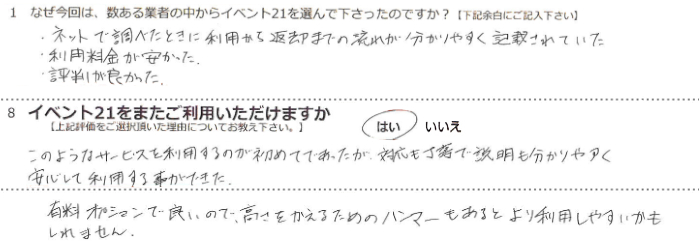 1 なぜ今回は、数ある業者の中からイベント21を選んで下さったのですか？【下記余白にご記入下さい】
・ネットで調べたときに利用から返却までの流れが分かりやすく記載されていた
・利用料金が安かった.
・評判が良かった.
8 イベント21をまたご利用いただけますか
【上記評価をご選択頂いた理由についてお教え下さい。】
はい いいえ
このようなサービスを利用するのが初めてであったが、対応も丁寧で説明も分かりやすく
安心して利用する事ができた.
有料オプションで良いので、高さをかえるためのハンマーもあるとより利用しやすいかも
しれません.